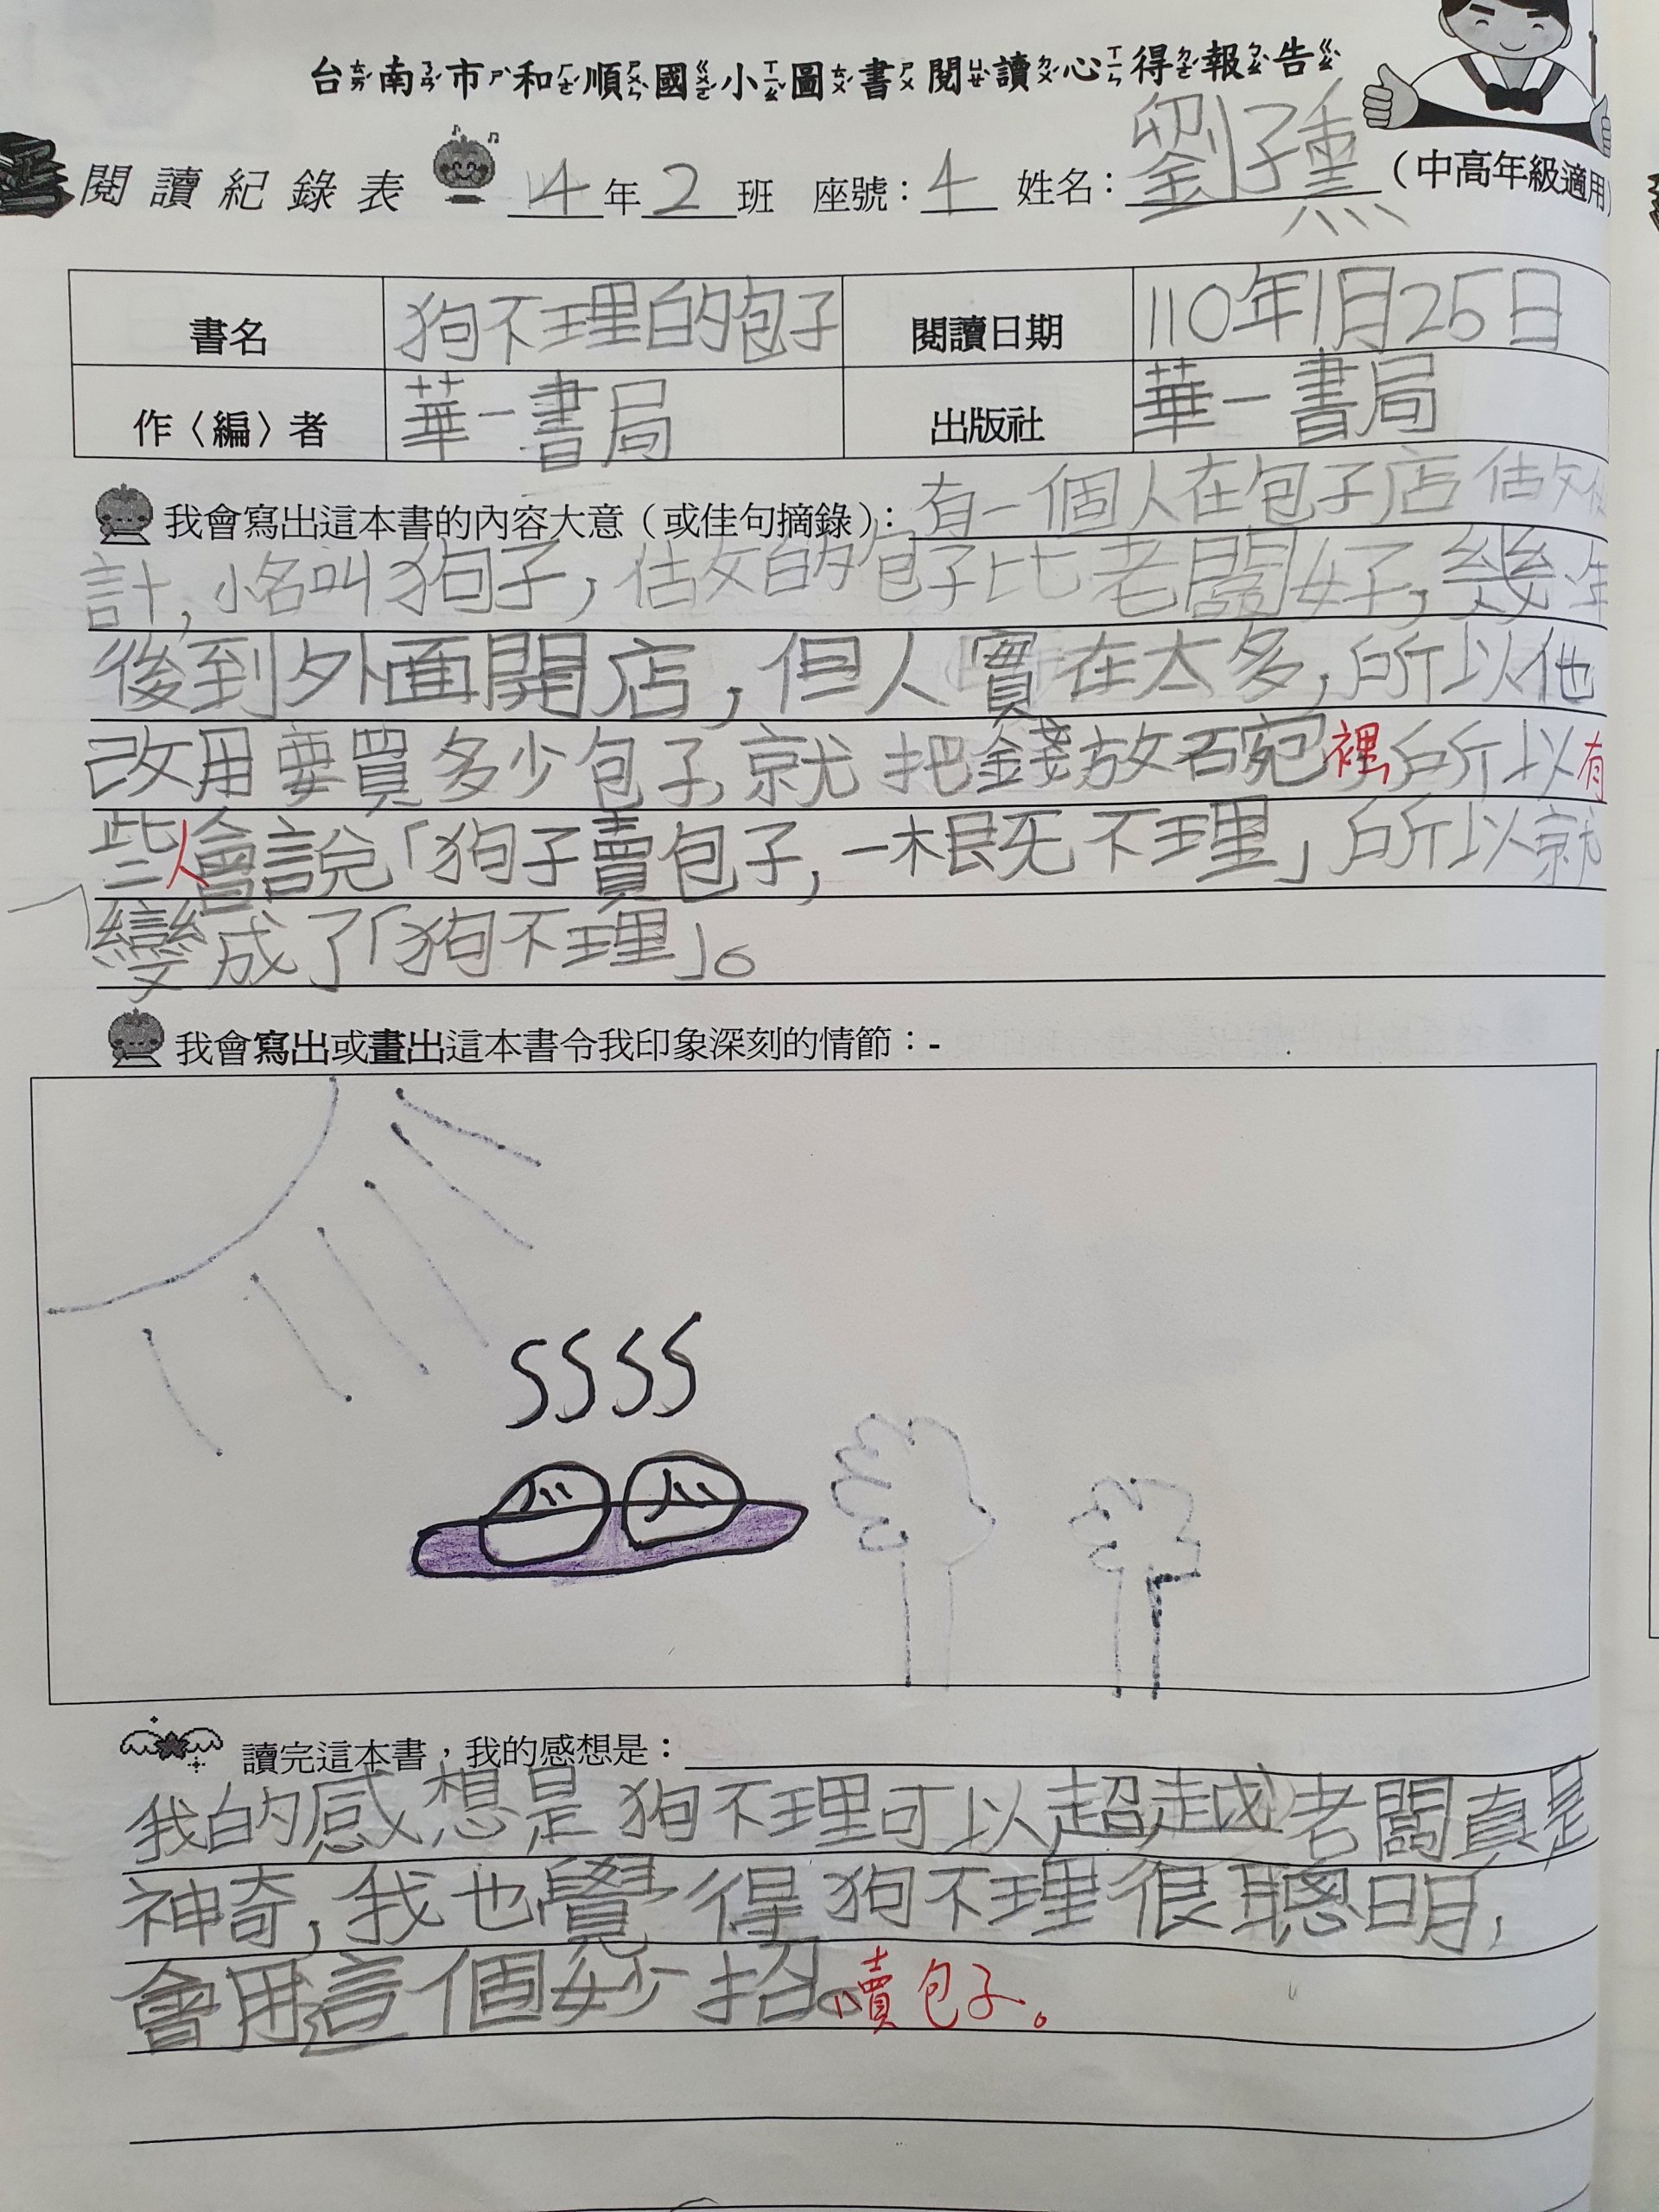 台南市和順國小圖書閱讀心得報告
閱讀紀錄表 4年2班 座號：4 姓名：劉子熏（中高年級適用）
書名 狗不理的包子 閱讀日期 110年1月25日
作〈編〉者 華一書局 出版社 華一書局
我會寫出這本書的內容大意（或佳句摘錄）：有一個人在包子店做
計，小名叫狗子，做的包子比老闆好，幾年
後到外面開店，但人實在太多，所以他
改用要買多少包子，就把錢放碗裡所以有
些人會說「狗子賣包子，一根旡不理」所以就
變成了「狗不理」。
我會寫出或畫出這本書令我印象深刻的情節：-
SSSS
讀完這本書，我的感想是：
我的感想是狗不理可以超越老闆真是
神奇，我也覺得狗不理很聰明，
會用這個妙招。賣包子。